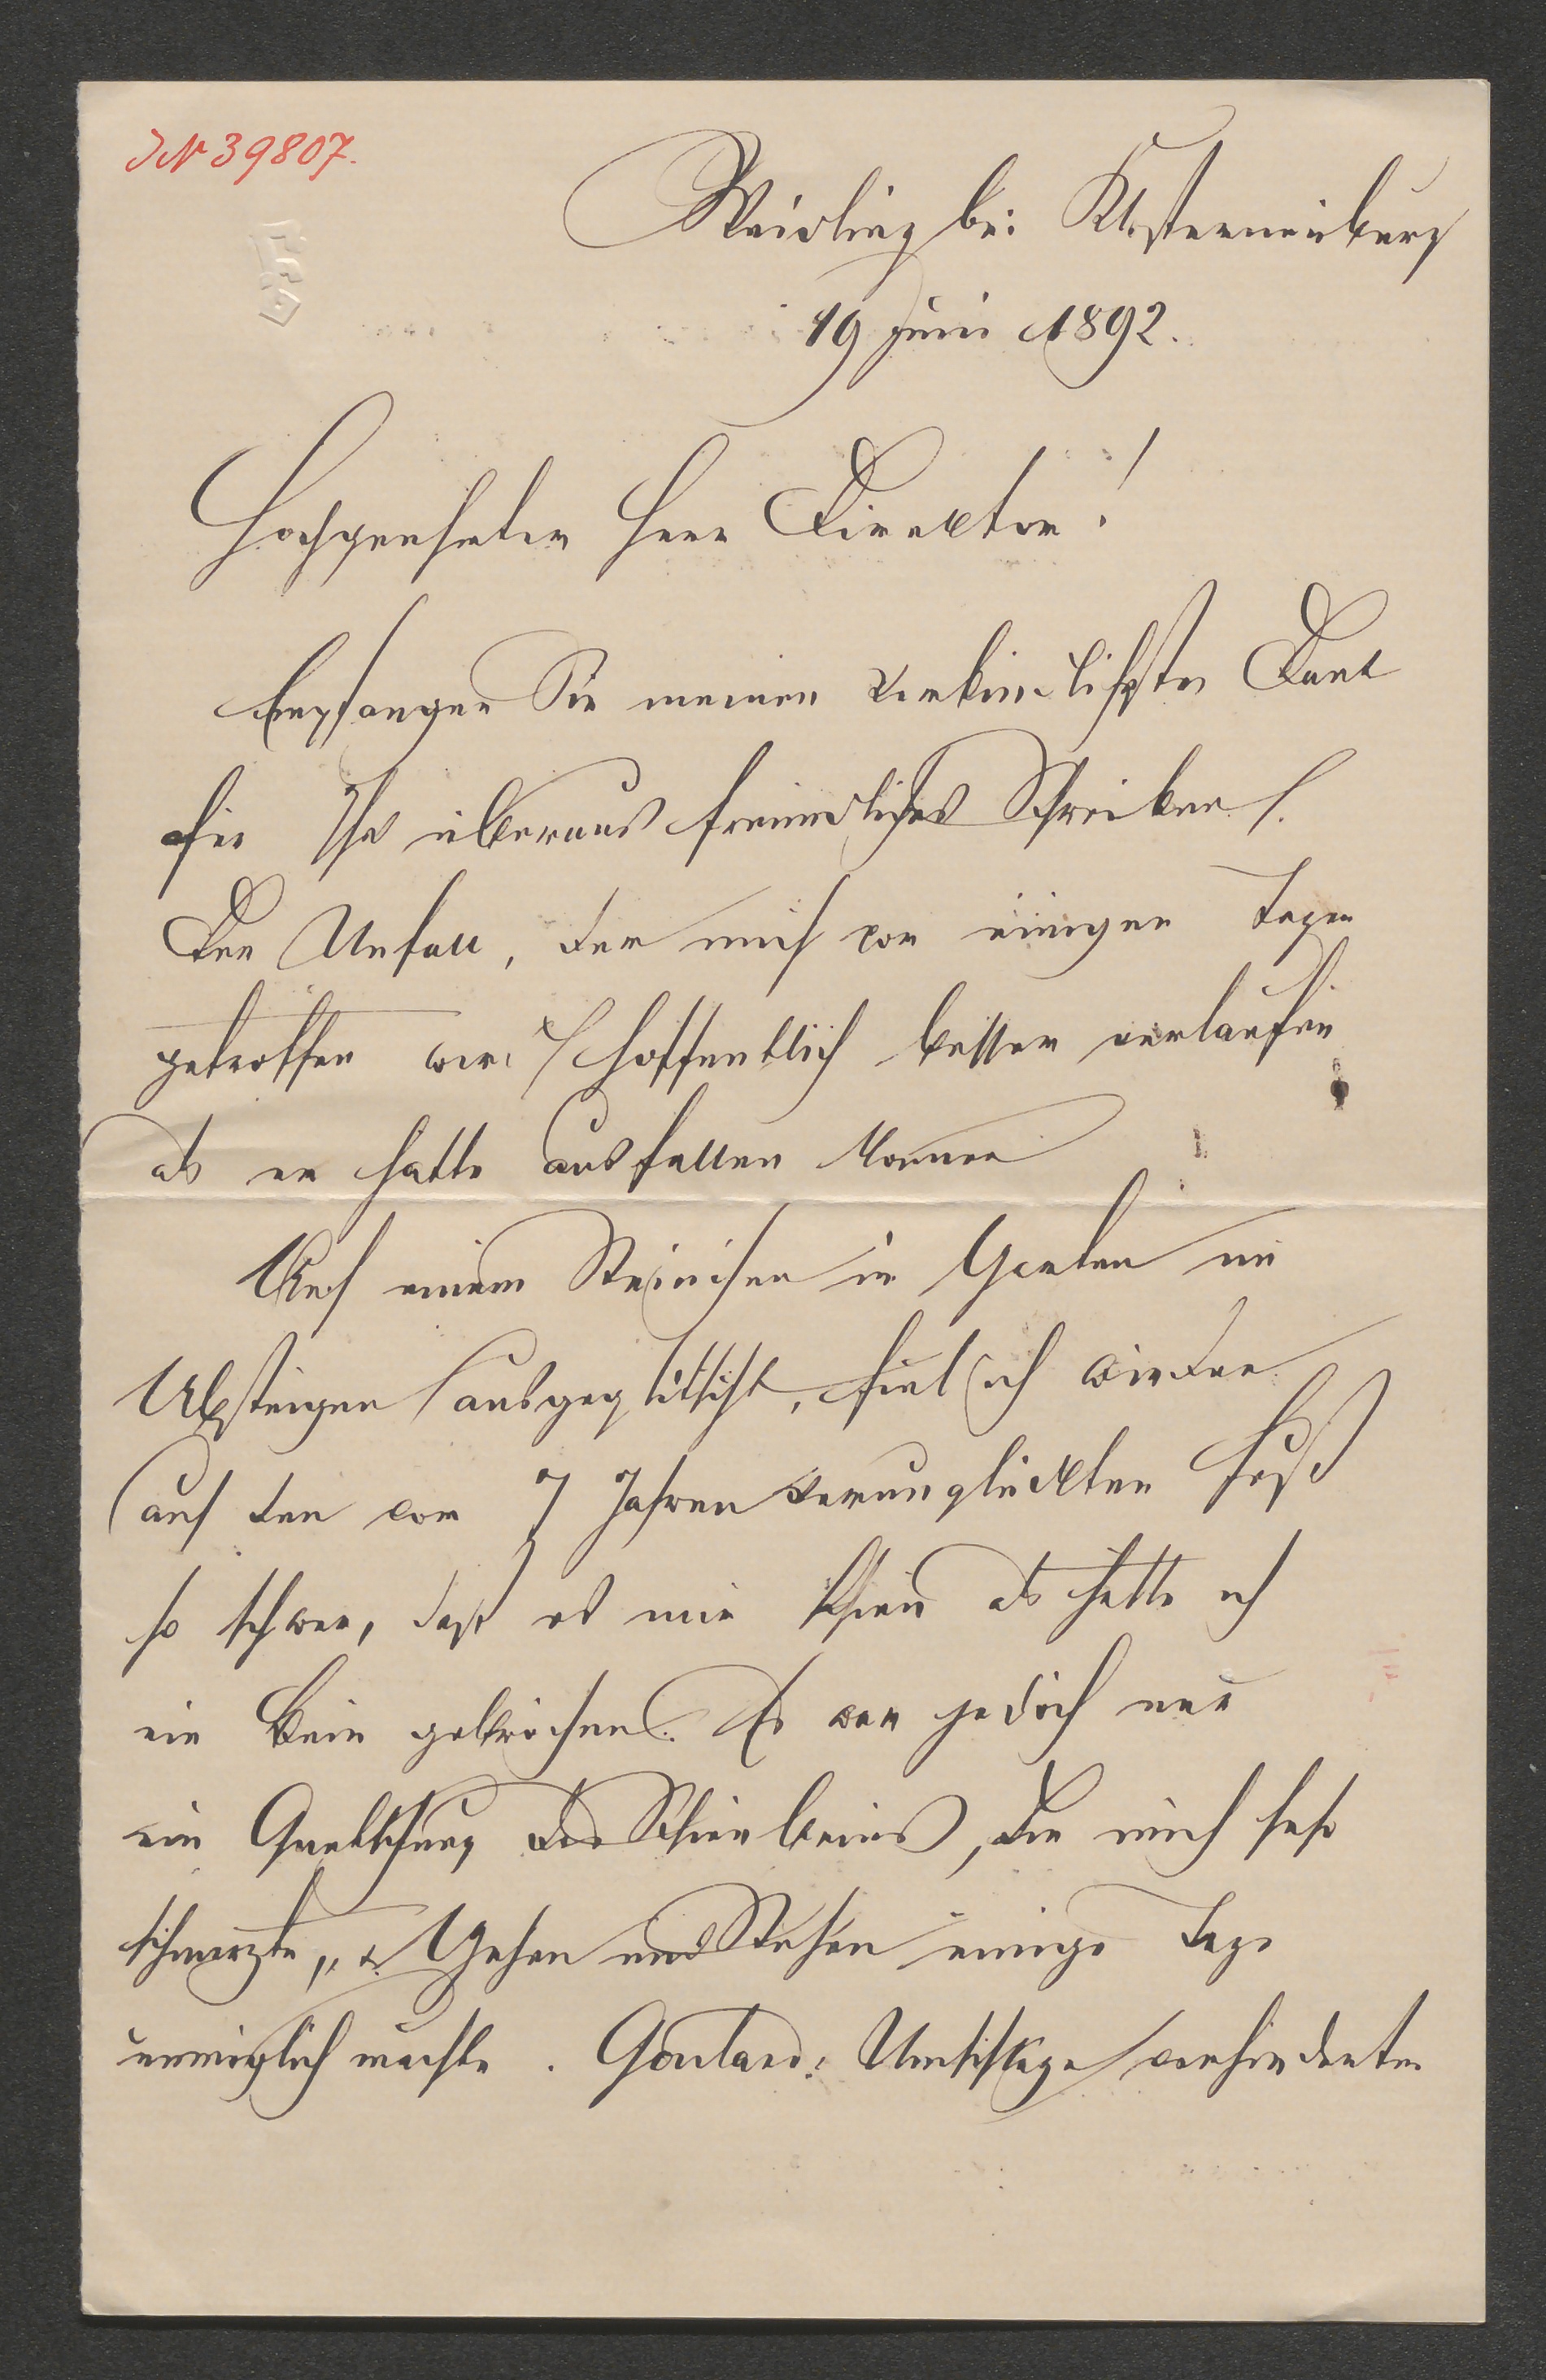 JN 39807.
Weidling bei Klosterneuburg
19 Juni 1892.
Hochgeehrter Herr Direktor!
Empfangen Sie meinen verbindlichsten Dank
für Ihr überaus freundliches Schreiben.
Der Unfall, der mich vor einigen Tagen
getroffen wird hoffentlich besser verlaufen
als er hätte ausfallen können
Auf einem Steinchen im Garten im
Absteigen ausgeglitscht, fiel ich wieder
auf den vor 7 Jahren verunglückten Fuß
so schwer, daß es mir schien als hätte ich
ein Bein gebrochen. Es war jedoch nur
ein Quetschung des Schienbeins, die mich sehr
schmerzte, & Gehen und Stehen einige Tage
unmöglich machte. Goulard: Umschläge verhinderten